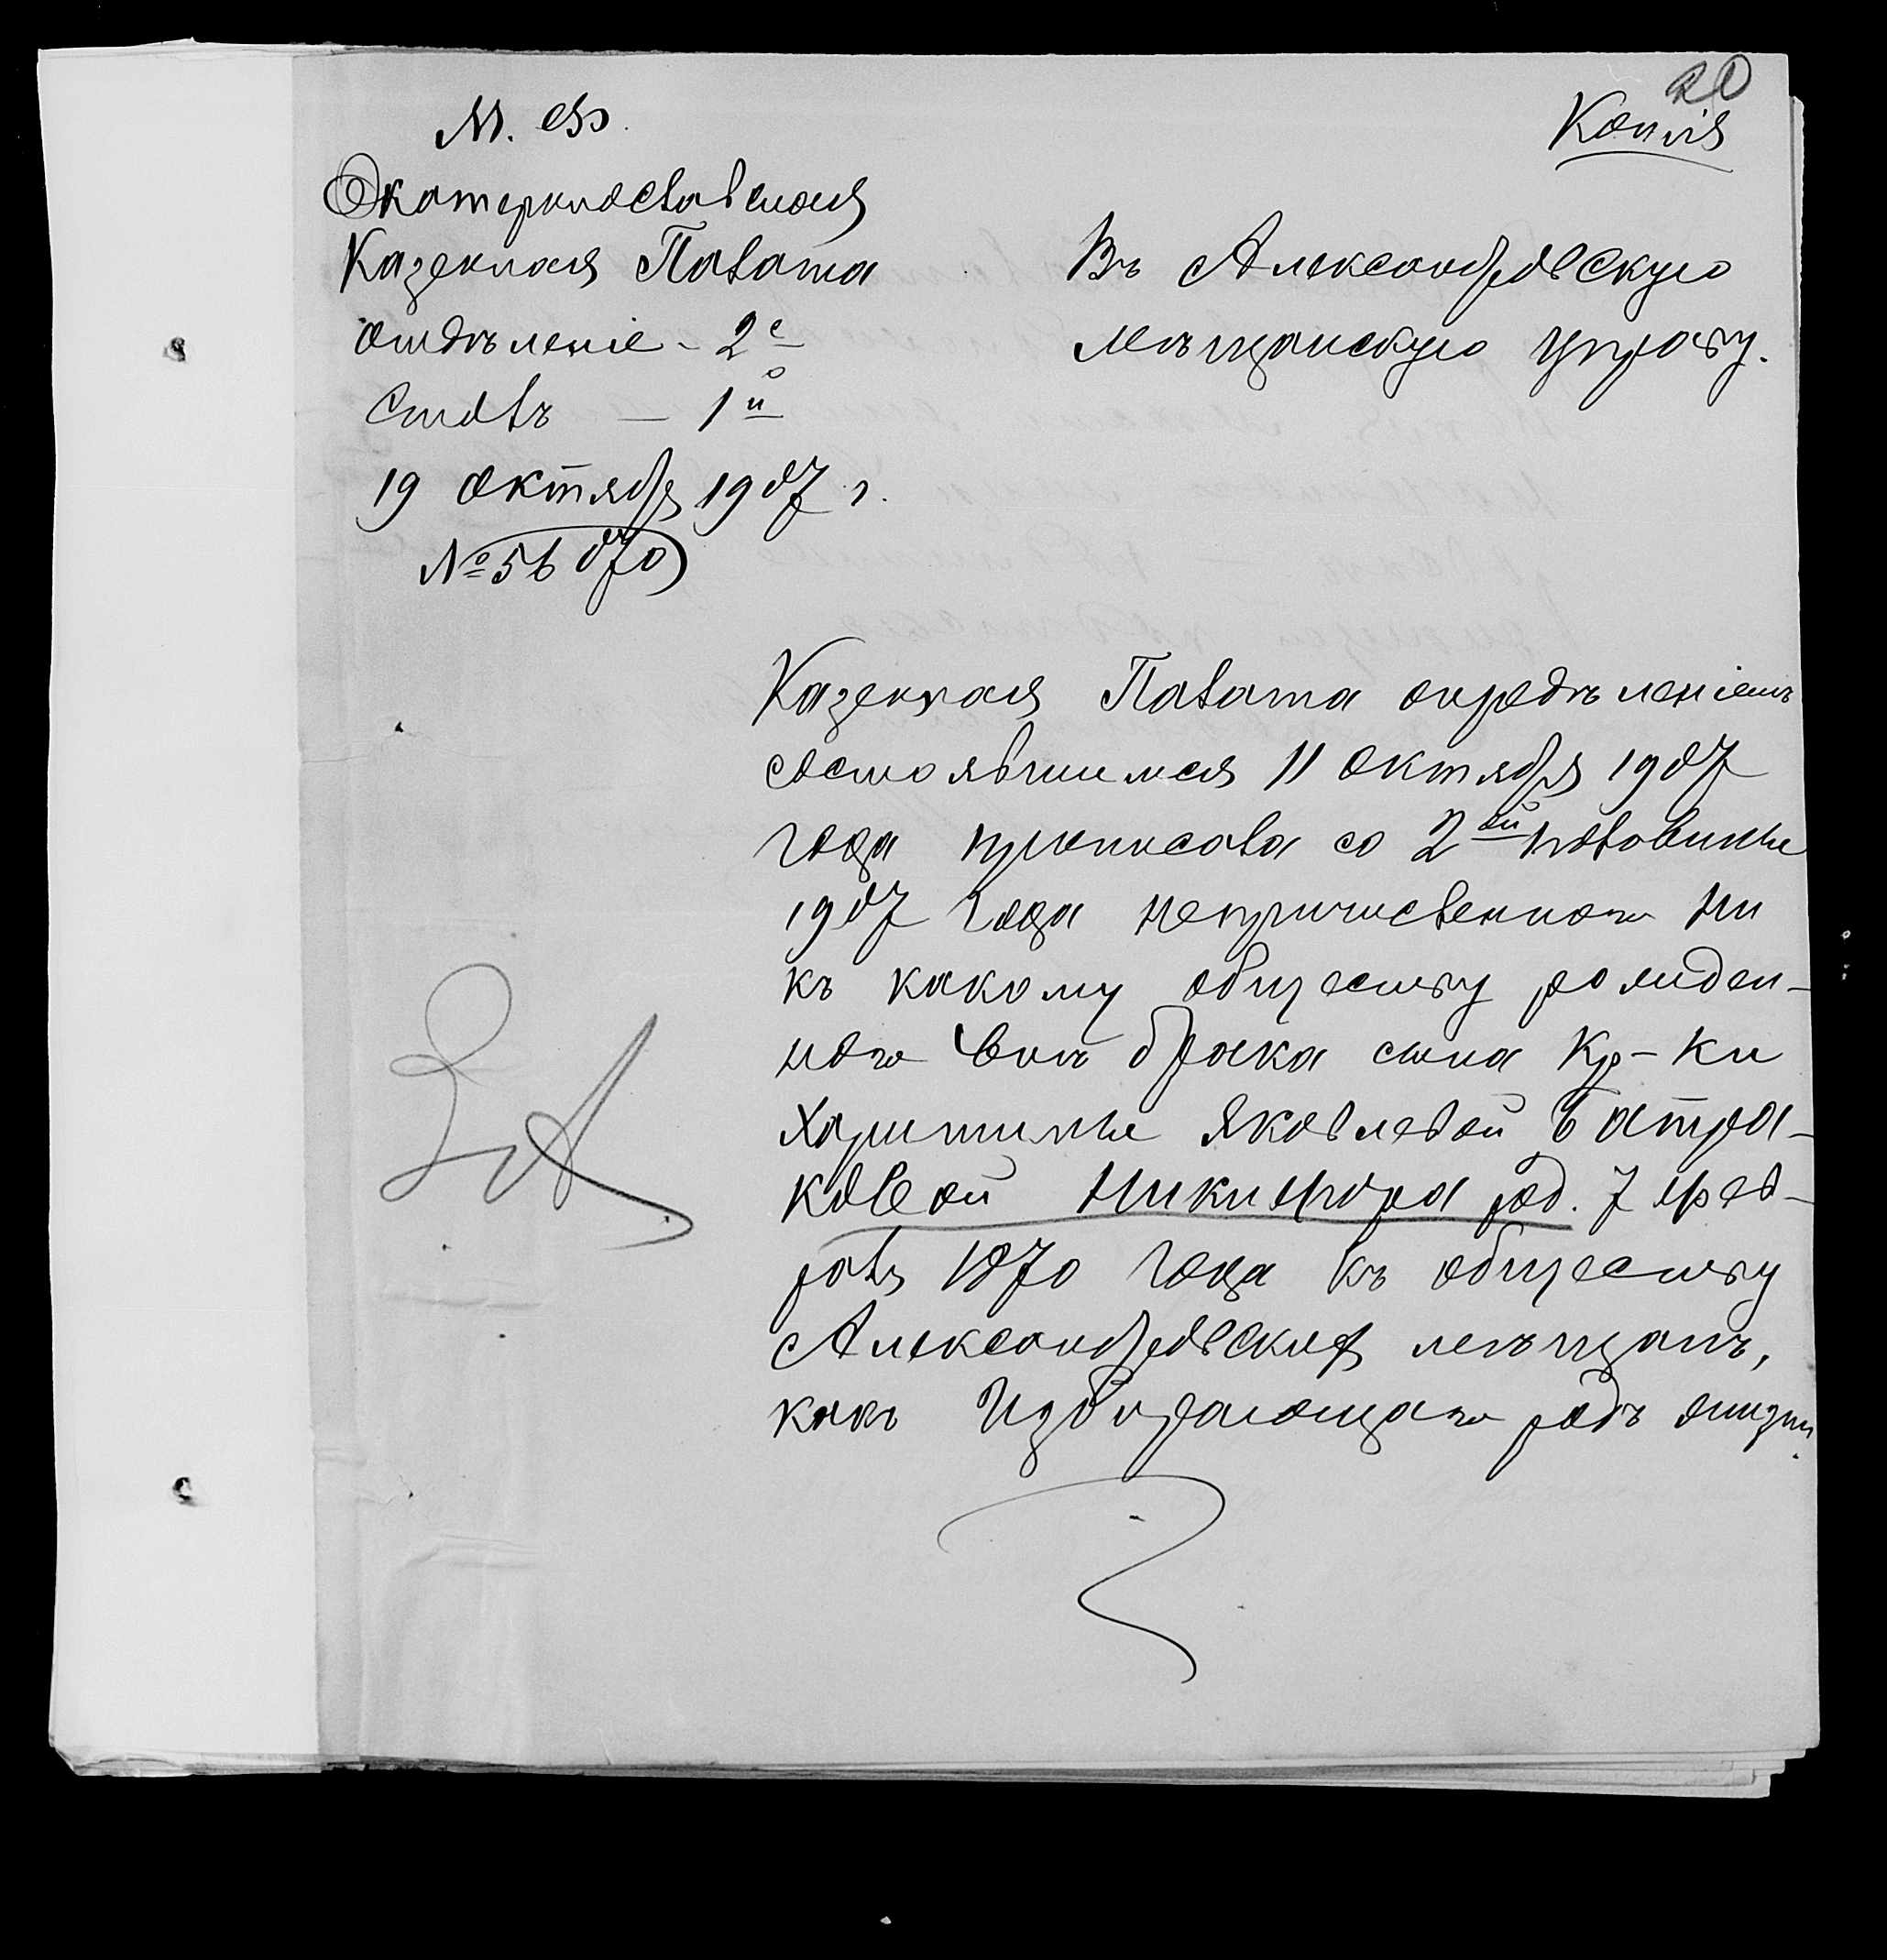 20
Копія
М. Ф.
Екатеринославская
Казенная Палата
отдѣленіе - 2е
Столъ — 1й
19 октября 1907 г.
№ 56070
Въ Александровскую
мѣщанскую управу.
Казенная Палата опредѣленіемъ
состоявшимся 11 октября 1907
года приписала со 2ой половины
1907 года непричисленного ни
къ какому обществу рожден-
ного внѣ брака сына кр-ки
Харитины Яковлевой Батра-
ковой Никифора род. 7 фев-
раля 1870 года къ обществу
Александровскихъ мѣщанъ,
какъ избирающаго родъ жизни.